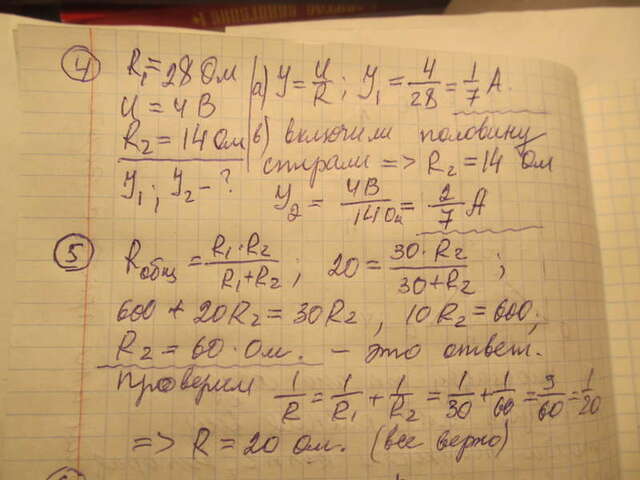 ④ R₁ = 28 Ом
U = 4 В
R₂ = 14 Ом
У₁; У₂ - ?
а) У = U/R; У₁ = 4/28 = 1/7 А.
в) включили половину
спирали => R₂ = 14 Ом
У₂ = 4В/14Ом = 2/7 А
⑤ Rобщ = R₁·R₂/R₁+R₂; 20 = 30·R₂/30+R₂;
600 + 20R₂ = 30R₂, 10R₂ = 600;
R₂ = 60 Ом. - это ответ.
Проверим 1/R = 1/R₁ + 1/R₂ = 1/30 + 1/60 = 3/60 = 1/20
=> R = 20 Ом. (все верно)